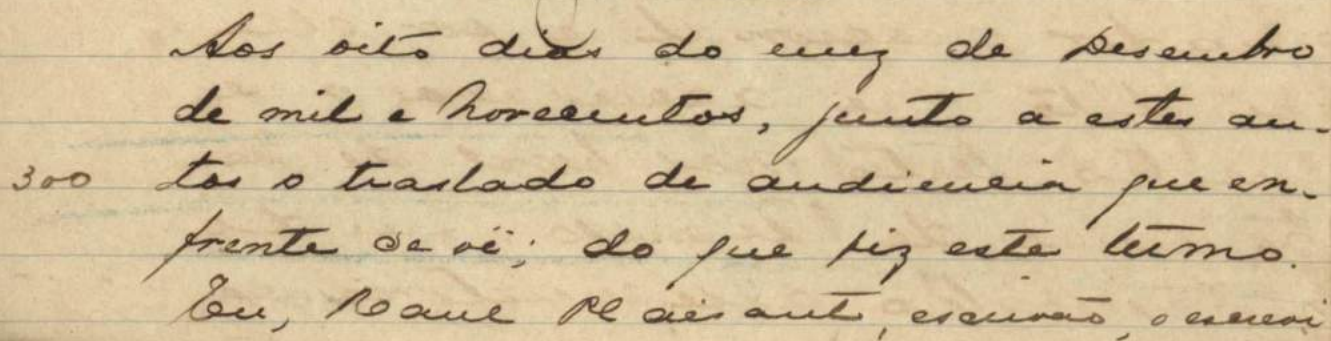 Aos oito dias do mez de Desembro
de mil e novecentos, junto a estes au-
300 tos o traslado de audiencia que en-
frente se vê; do que fiz este termo.
Eu, Raul Plaisant, escrivão, o escrevi